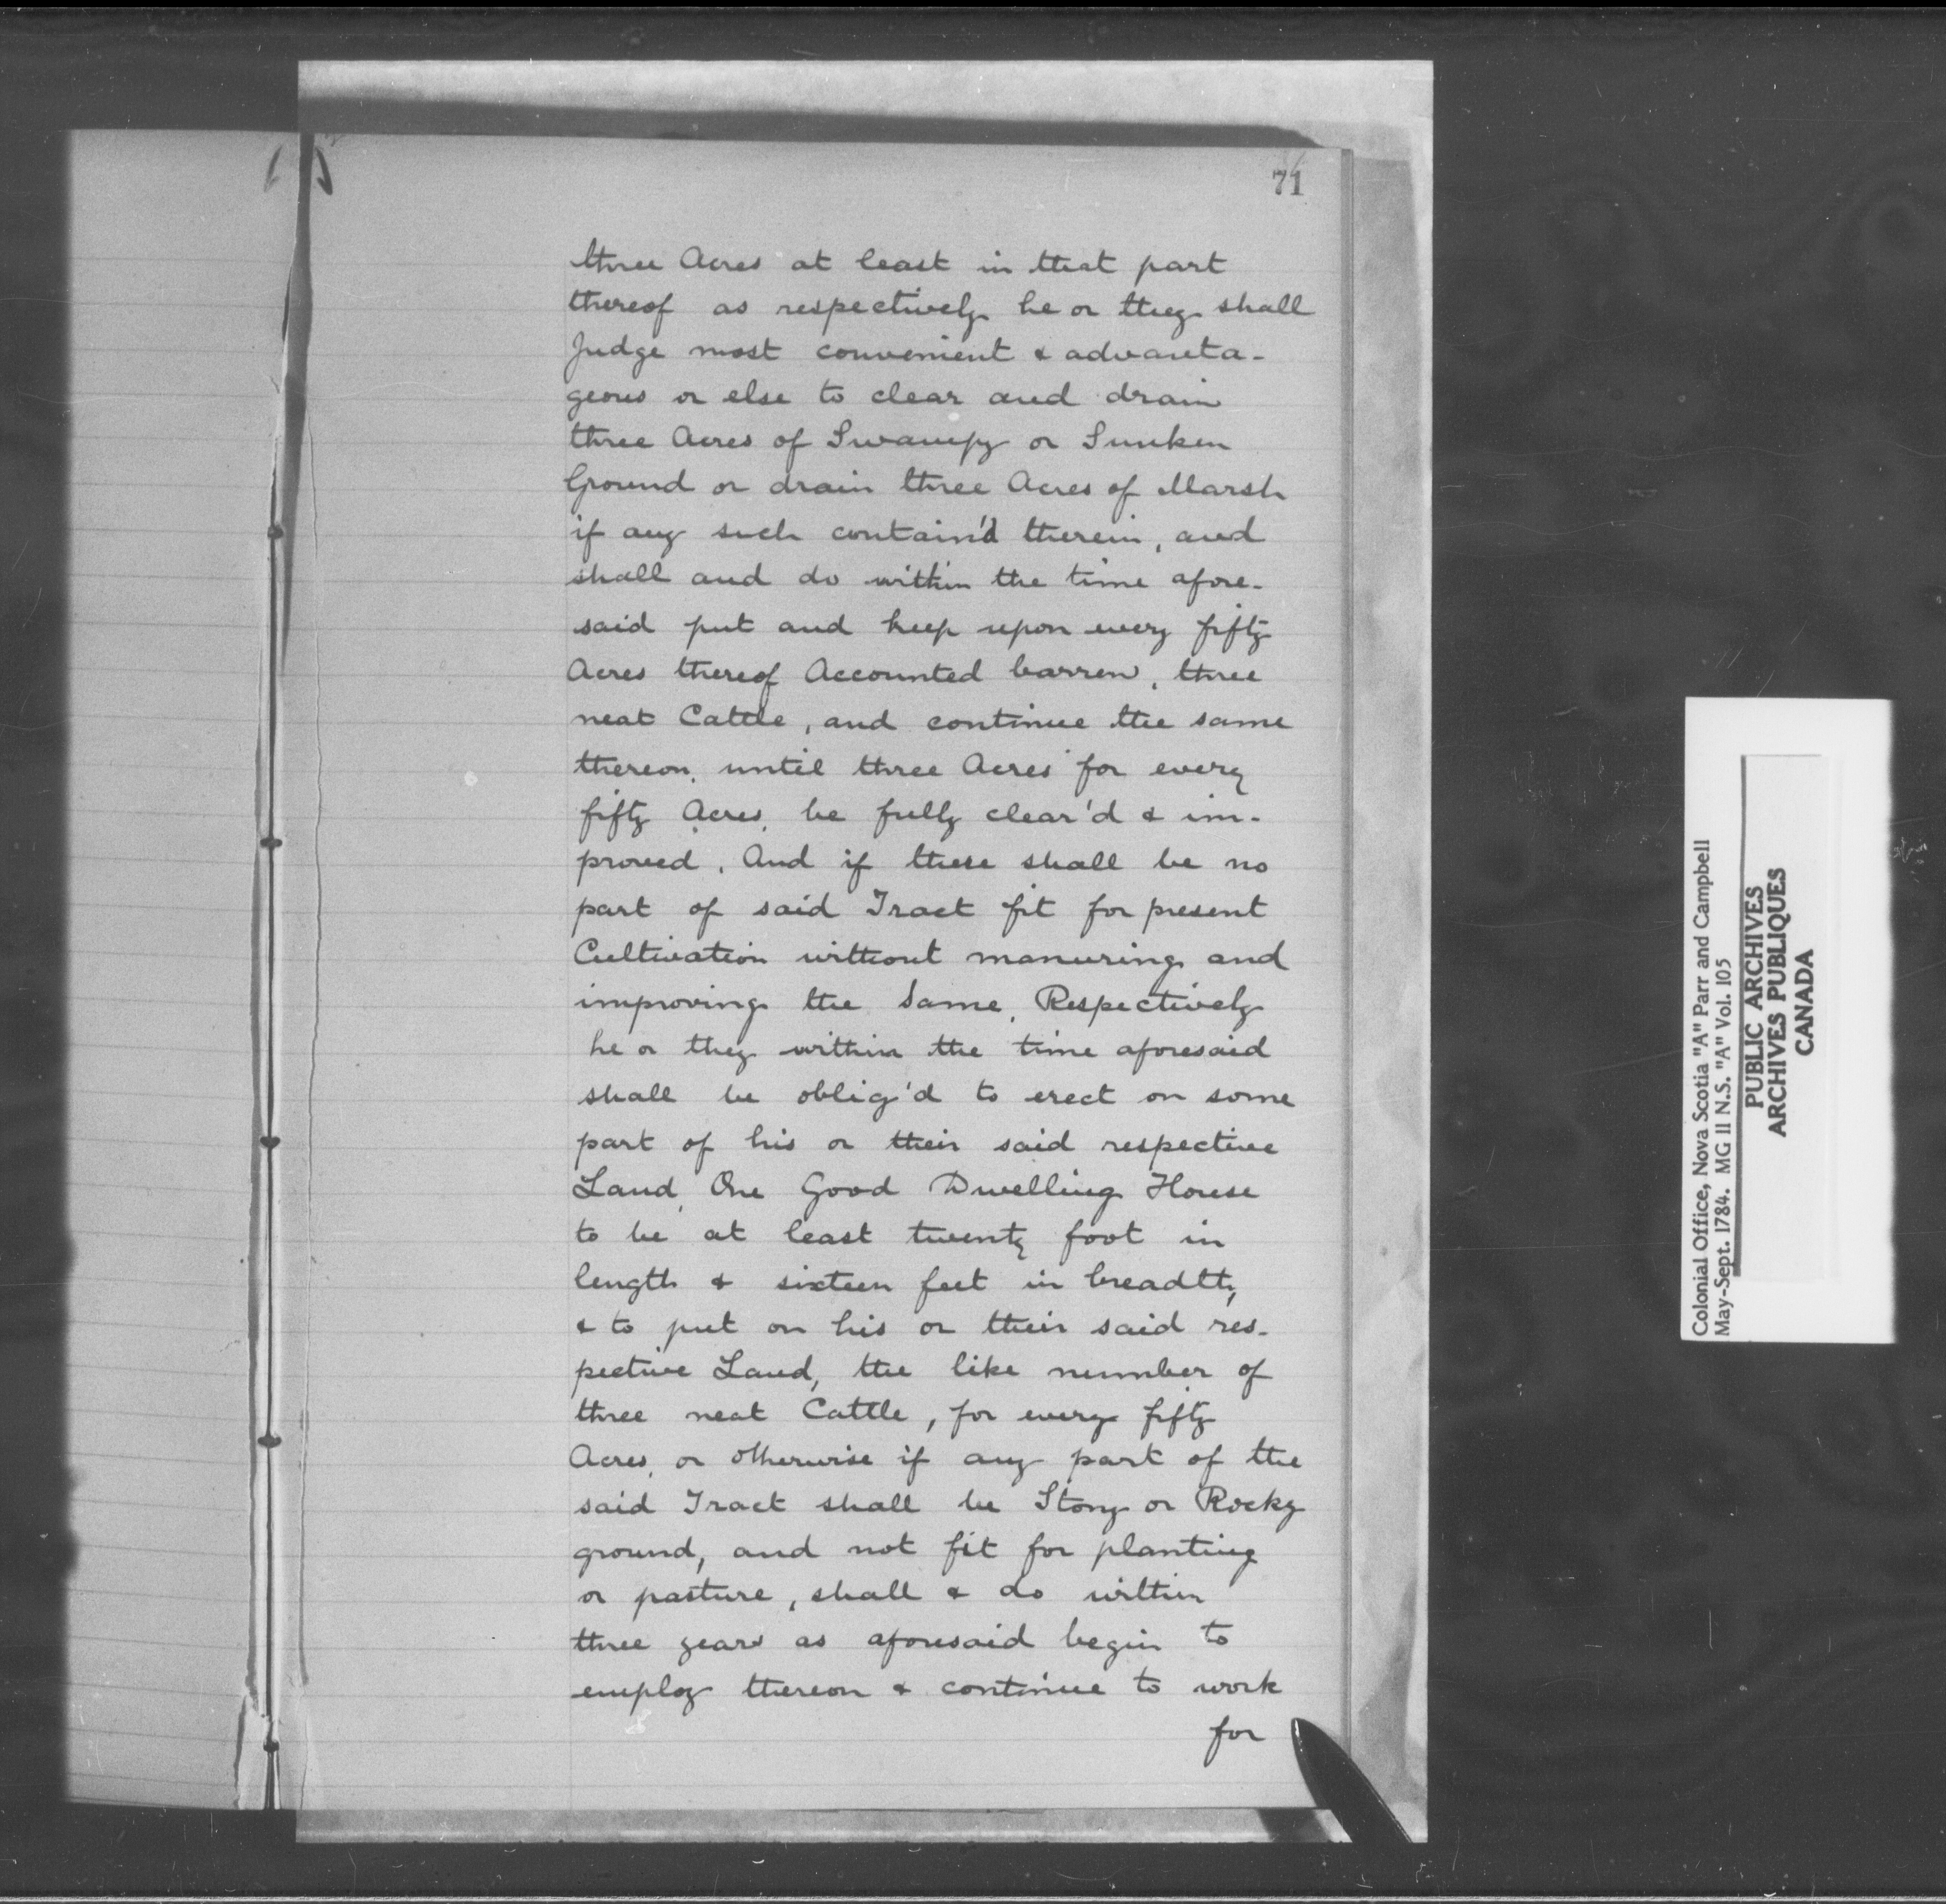 71
three Acres at least in that part
thereof as respectively he or they shall
Judge most convenient & advanta-
geous or else to clear and drain
three Acres of Swampy or Sunken
Ground or drain three Acres of Marsh
if any such contain'd therein, and
shall and do within the time afore-
said put and keep upon every fifty
Acres thereof Accounted barren, three
neat Cattle, and continue the same
thereon, until three Acres for every
fifty Acres, be fully clear'd & im-
proved. And if there shall be no
part of said Tract fit for present
Cultivation without manuring and
improving the Same, Respectively
he or they within the time aforesaid
shall be oblig'd to erect on some
part of his or their said respective
Land, One Good Dwelling House
to be at least twenty foot in
length & sixteen feet in breadth,
& to put on his or their said res-
pective Land, the like number of
three neat Cattle, for every fifty
Acres, or otherwise if any part of the
said Tract shall be Stony or Rocky
ground, and not fit for planting
or pasture, shall & do within
three years as aforesaid begin to
employ thereon & continue to work
for
Colonial Office, Nova Scotia "A" Parr and Campbell
May-Sept. 1784. MG 11 N.S. "A" Vol. 105
PUBLIC ARCHIVES
ARCHIVES PUBLIQUES
CANADA